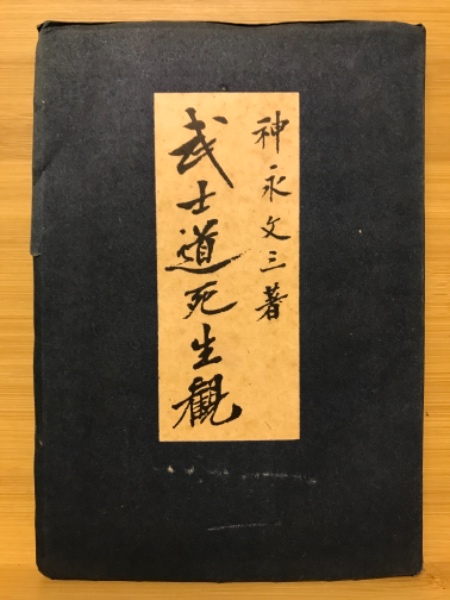 神永文三著
武士道死生観